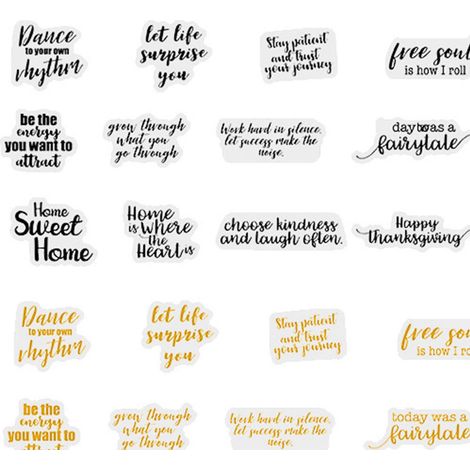 Dance
to your own
rhythm
let life
surprise
you
Stay patient
and trust
your journey
free soul
is how I roll
be the
energy
you want to
attract
grow through
what you
go through
Work hard in silence,
let success make the
noise.
day was a
fairytale
Home
Sweet
Home
Home
is where
the
Heart is
choose kindness
and laugh often.
Happy
thanksgiving
Dance
to your own
rhythm
let life
surprise
you
Stay patient
and trust
your journey
free soul
is how I r
be the
energy
you want to
attract
grow through
what you
go through
Work hard in silence,
let success make the
noise.
today was a
fairytale